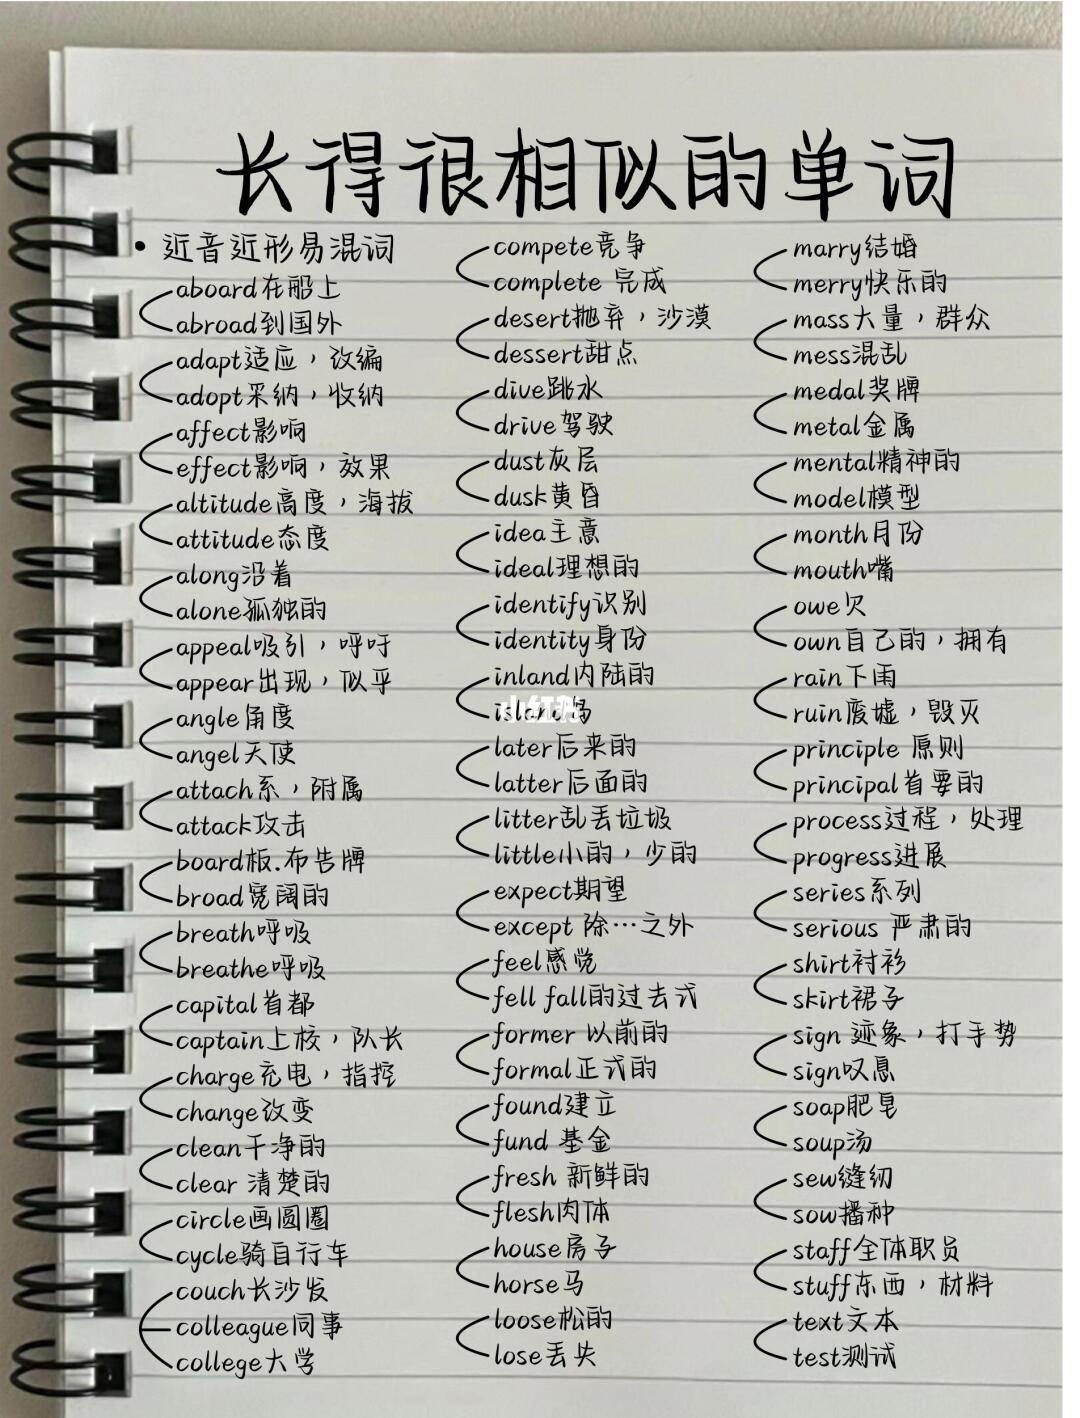 长得很相似的单词
• 近音近形易混词
aboard在船上
abroad到国外
adapt适应，改编
adopt采纳，收纳
affect影响
effect影响，效果
altitude高度，海拔
attitude态度
along沿着
alone孤独的
appeal吸引，呼吁
appear出现，似乎
angle角度
angel天使
attach系，附属
attack攻击
board板.布告牌
broad宽阔的
breath呼吸
breathe呼吸
capital首都
captain上校，队长
charge充电，指控
change改变
clean干净的
clear 清楚的
circle画圆圈
cycle骑自行车
couch长沙发
colleague同事
college大学
compete竞争
complete 完成
desert抛弃，沙漠
dessert甜点
dive跳水
drive驾驶
dust灰层
dusk黄昏
idea主意
ideal理想的
identify识别
identity身份
inland内陆的
island岛
小红书
later后来的
latter后面的
litter乱丢垃圾
little小的，少的
expect期望
except 除…之外
feel感觉
fell fall的过去式
former 以前的
formal正式的
found建立
fund 基金
fresh 新鲜的
flesh肉体
house房子
horse马
loose松的
lose丢失
marry结婚
merry快乐的
mass大量，群众
mess混乱
medal奖牌
metal金属
mental精神的
model模型
month月份
mouth嘴
owe欠
own自己的，拥有
rain下雨
ruin废墟，毁灭
principle 原则
principal首要的
process过程，处理
progress进展
series系列
serious 严肃的
shirt衬衫
skirt裙子
sign 迹象，打手势
sign叹息
soap肥皂
soup汤
sew缝纫
sow播种
staff全体职员
stuff东西，材料
text文本
test测试